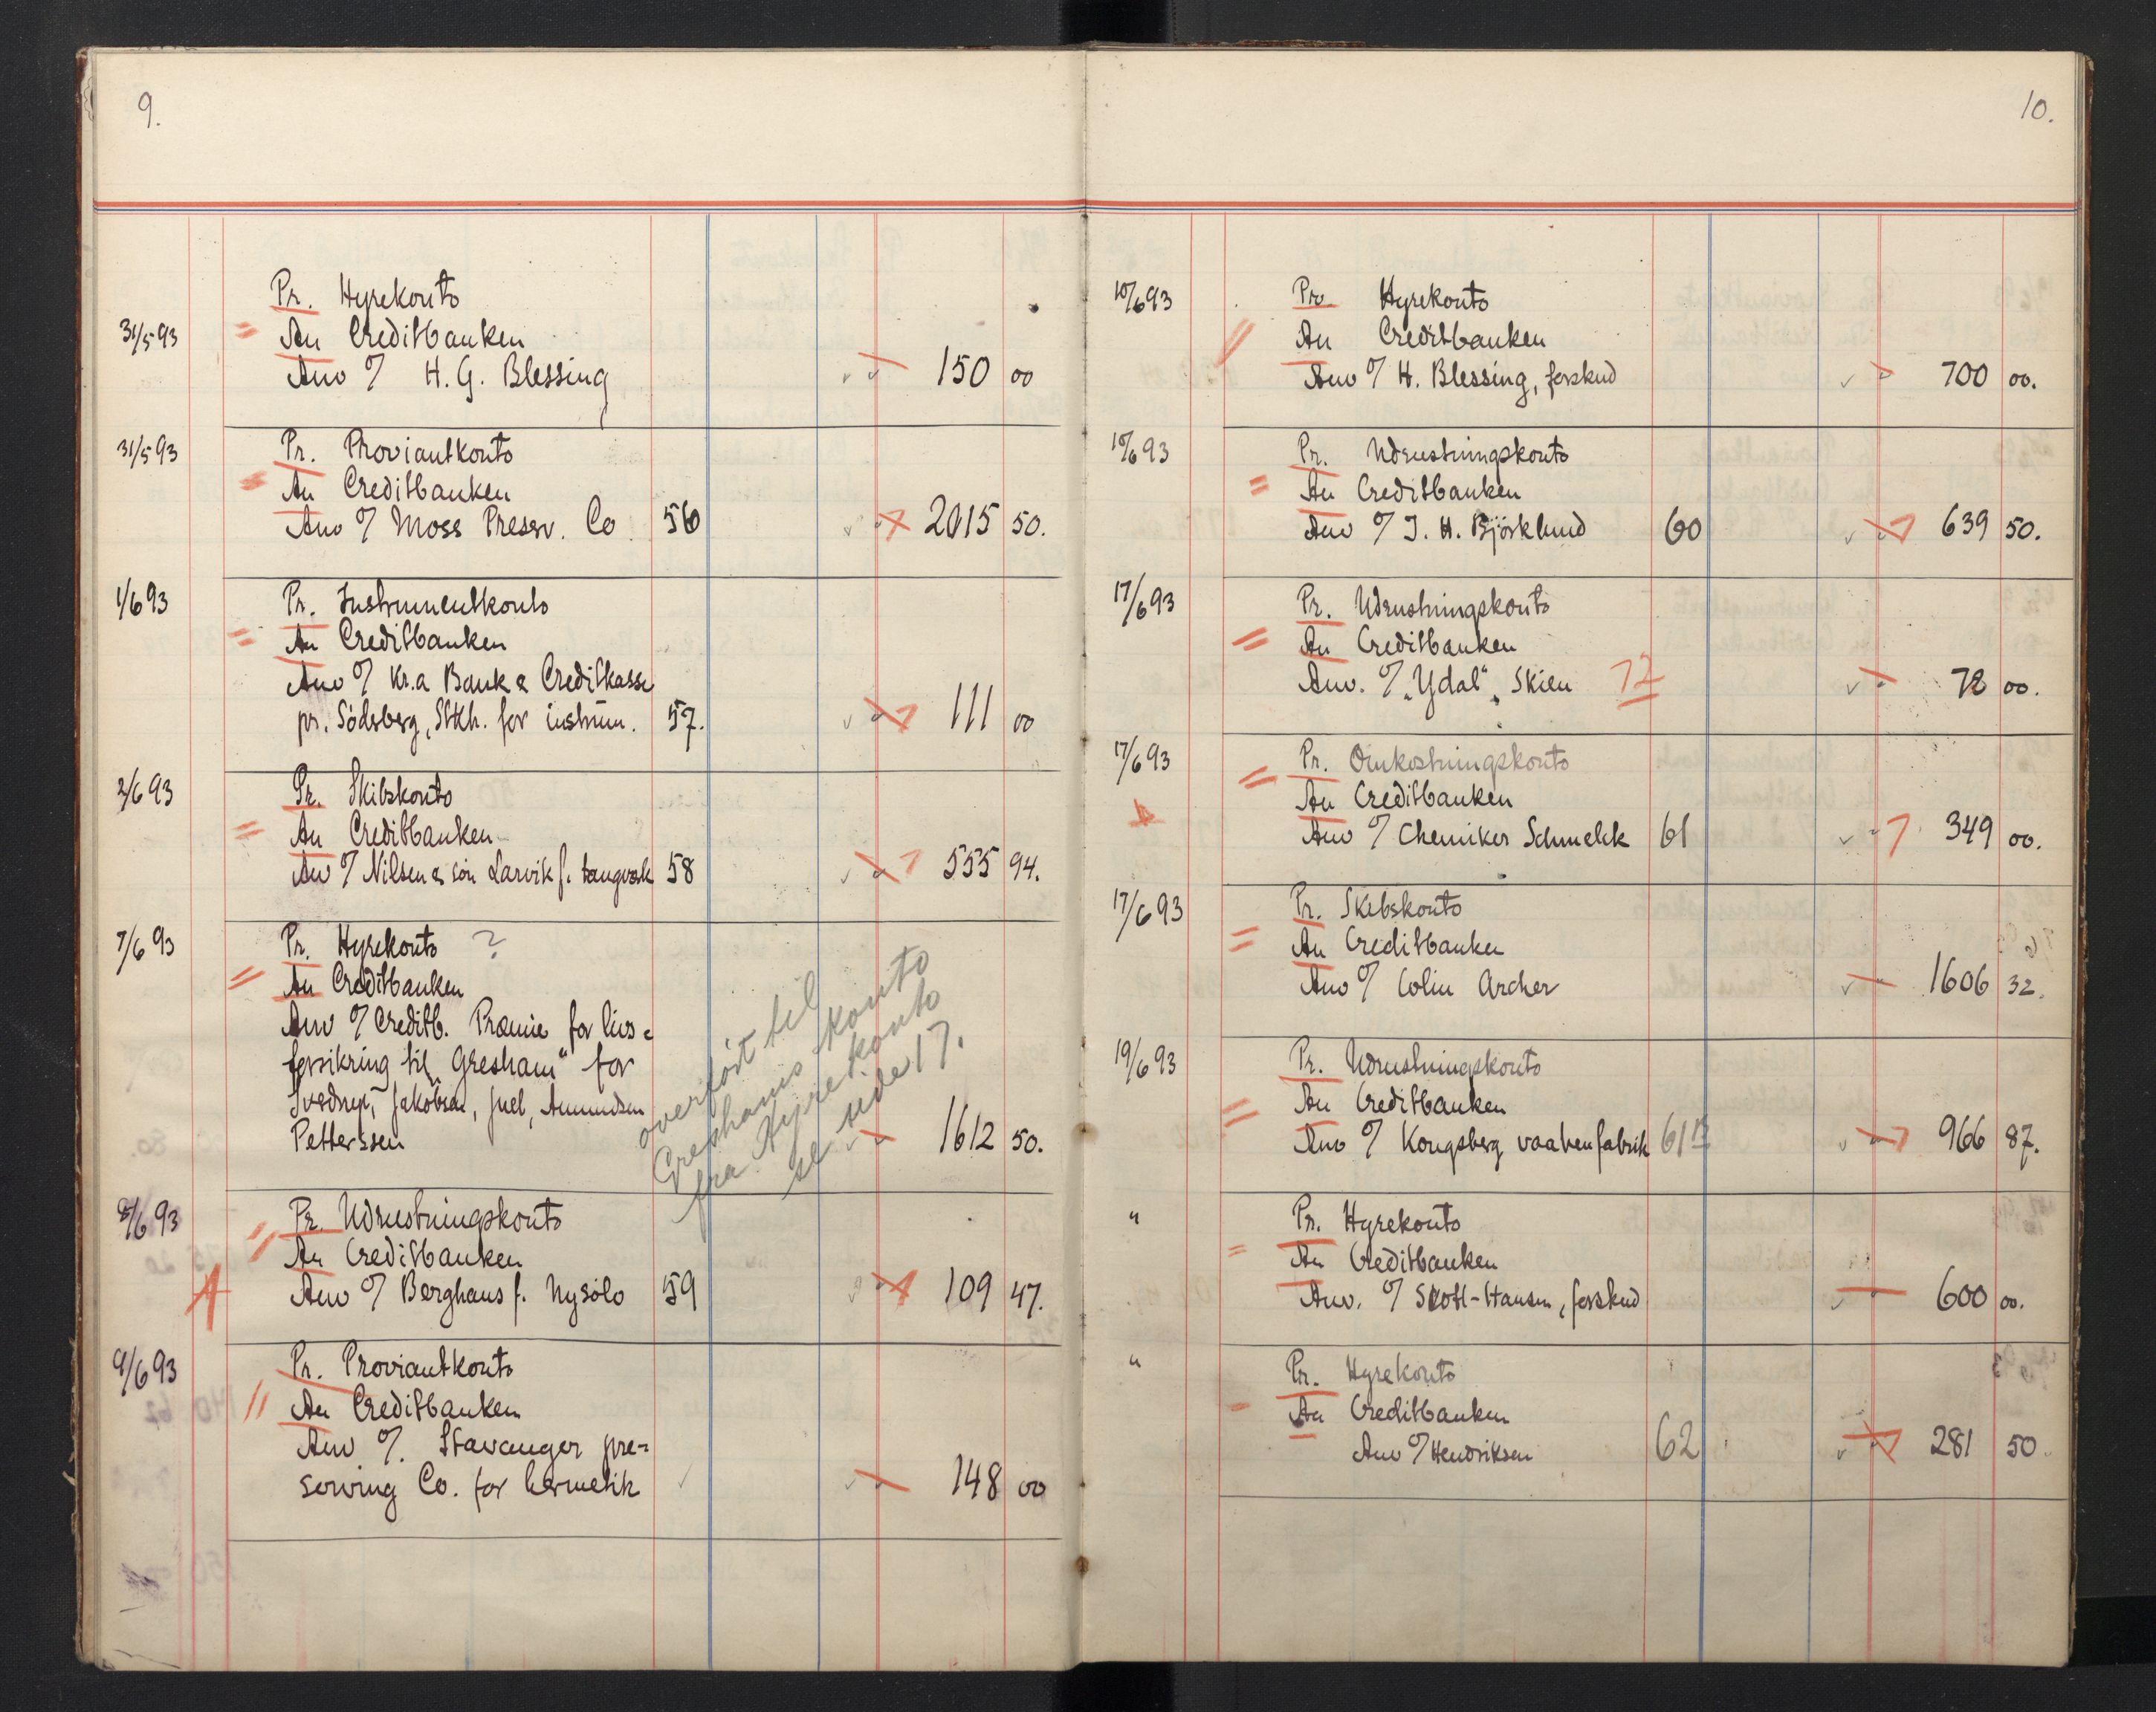 9.
Pr. Hyrekonto
31/5 93 An Creditbanken
Anv % H. G. Blessing 150 00
31/5 93 Pr. Proviantkonto
An Creditbanken
Anv % Moss Preserv. Co 56 2015 50.
1/6 93 Pr. Instrumentkonto
An Creditbanken
Anv % Kr.a Bank & Creditkasse
pr. Söderberg, Stkh. for instrum. 57. 111 00
2/6 93 Pr. Skibskonto
An Creditbanken
An % Nilsen & søn Larvik f. tangverk 58 555 94.
7/6 93 Pr. Hyrekonto ?
An Creditbanken
Anv % Creditb. Præmie for livs=
forsikring til „Gresham“ for
Svedrup, Jakobsen, Juel, Amundsen
Petterssen 1612 50.
overført til
Greshams konto
fra Hyrekonto
se side 17.
8/6 93 Pr. Udrustningskonto
An Creditbanken
Anv % Berghaus f. Nysølo 59 109 47.
9/6 93 Pr. Proviantkonto
An Creditbanken
Anv %. Stavanger pre=
serving Co. for hermetik 148 00
10.
10/6 93 Pr. Hyrekonto
An Creditbanken
Anv % H. Blessing, forskud 700 00.
10/6 93 Pr. Udrustningskonto
An Creditbanken
Anv % J. H. Björklund 60 639 50.
17/6 93 Pr. Udrustningskonto
An Creditbanken
Anv. % „Ydal“, Skien 72 72 00.
17/6 93 Pr. Omkostningskonto
An Creditbanken
Anv % Chemiker Schmelck 61 349 00.
17/6 93 Pr. Skibskonto
An Creditbanken
Anv % Colin Archer 1606 32.
19/6 93 Pr. Udrustningskonto
An Creditbanken
Anv % Kongsberg vaabenfabrik 61 B 966 87.
" Pr. Hyrekonto
An Creditbanken
Anv. % Scott-Hansen, forskud 600 00.
" Pr. Hyrekonto
An Creditbanken
Anv % Hendriksen 62 281 50